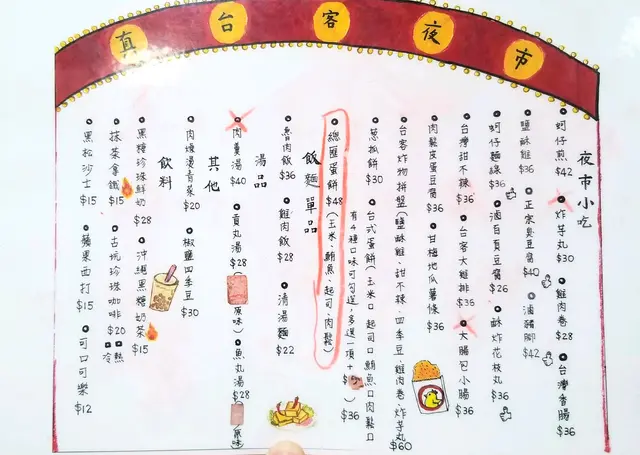 真台客夜市
夜市小吃
蚵仔煎 $42
炸芋丸 $30
雞肉卷 $28
台灣香腸 $36
鹽酥雞 $36
正宗臭豆腐 $40
滷豬腳 $42
蚵仔麵線 $36
滷百頁豆腐 $26
酥炸花枝丸 $36
台灣甜不辣 $36
台客大雞排 $36
大腸包小腸 $36
肉鬆皮蛋豆腐 $36
甘梅地瓜薯條 $36
台客炸物拼盤(鹽酥雞、甜不辣、四季豆、雞肉卷、炸芋丸 $60
蔥抓餅 $30
台式蛋餅(玉米口 起司口 鮪魚口 肉鬆口
有4種口味可勾選,多選一項+ $36
總匯蛋餅 $48(玉米、鮪魚、起司、肉鬆)
飯麵單品
魯肉飯 $36
雞肉飯 $28
清湯麵 $22
湯品
肉羹湯 $40
貢丸湯 $28
原味)
魚丸湯 $28
原味)
其他
肉燥燙青菜 $20
椒鹽四季豆 $30
飲料
黑糖珍珠鮮奶 $28
沖繩黑糖奶茶 $15
抹茶拿鐵 $15
古坑珍珠咖啡 $20
口冷 口熱
黑松沙士 $15
蘋果西打 $15
可口可樂 $12